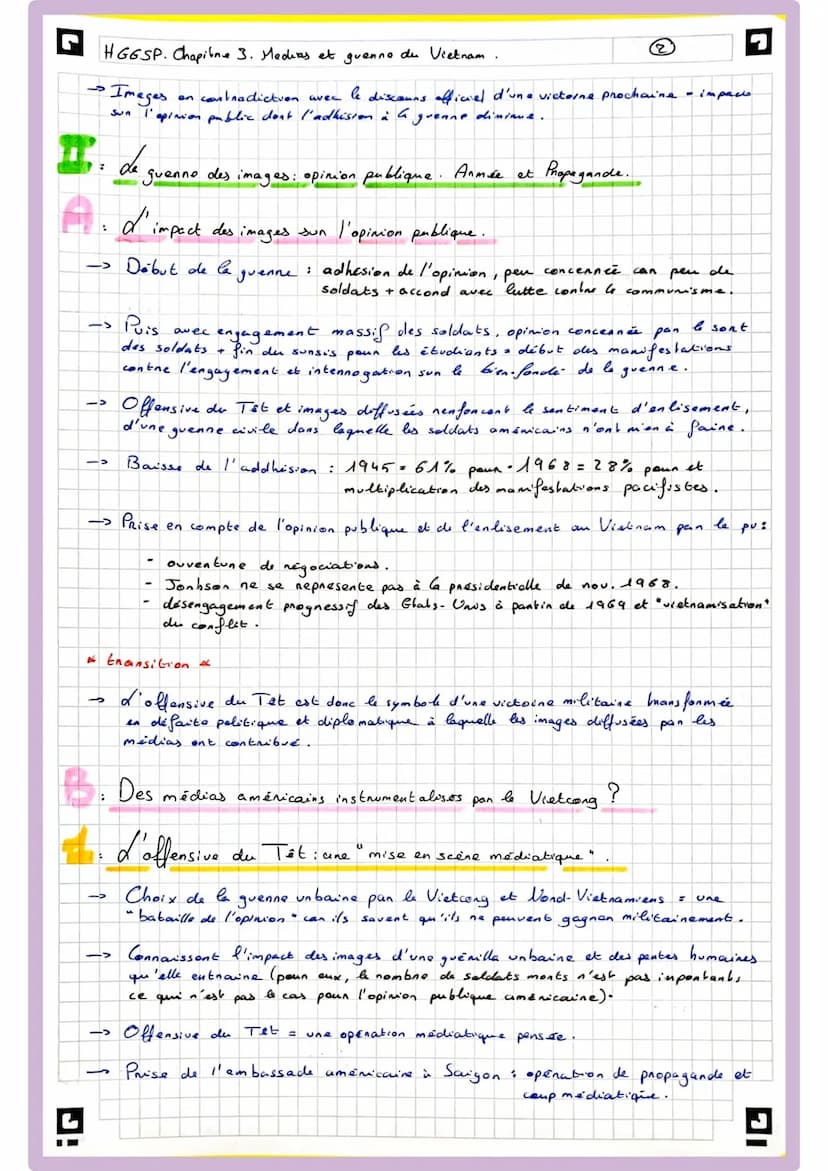 HGGSP. Chapitre 3. Medias et guerre du Vietnam.
2
→ Images en contradiction avec le discours officiel d'une victoire prochaine = impacts
sur l'opinion public dont l'adhésion à la guerre diminue.
II : La guerre des images : opinion publique. Armée et Propagande.
A : L'impact des images sur l'opinion publique.
→ Début de la guerre : adhésion de l'opinion, peu concernée car peu de
soldats + accord avec lutte contre le communisme.
→ Puis avec engagement massif des soldats, opinion concernée par le sort
des soldats + fin du sursis pour les étudiants = début des manifestations
contre l'engagement et interrogation sur le bien-fondé de la guerre.
→ Offensive du Têt et images diffusées renforcent le sentiment d'enlisement,
d'une guerre civile dans laquelle les soldats américains n'ont rien à faire.
→ Baisse de l'addhésion : 1945 = 61% pour • 1968 = 28% pour et
multiplication des manifestations pacifistes.
→ Prise en compte de l'opinion publique et de l'enlisement au Vietnam par le pv :
- ouverture de négociations.
- Jonhson ne se représente pas à la présidentielle de nov. 1968.
- désengagement progressif des Etats-Unis à partir de 1969 et "vietnamisation"
du conflit.
* transition *
→ L'offensive du Têt est donc le symbole d'une victoire militaire transformée
en défaite politique et diplomatique à laquelle les images diffusées par les
médias ont contribué.
B : Des médias américains instrumentalisés par le Vietcong ?
1 : L'offensive du Têt : une "mise en scène médiatique".
→ Choix de la guerre urbaine par le Vietcong et Nord-Vietnamiens = une
"bataille de l'opinion" car ils savent qu'ils ne peuvent gagner militairement.
→ Connaissent l'impact des images d'une guérilla urbaine et des pertes humaines
qu'elle entraine (pour eux, le nombre de soldats morts n'est pas inportant,
ce qui n'est pas le cas pour l'opinion publique américaine).
→ Offensive du Têt = une opération médiatique pensée.
→ Prise de l'embassade américaine à Saigon : opération de propagande et
coup médiatique.